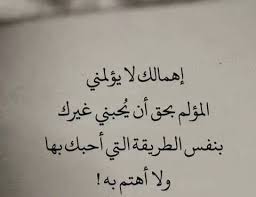 إهمالك لا يؤلمني
المؤلم بحق أن يُحبني غيرك
بنفس الطريقة التي أحبك بها
ولا أهتم به !